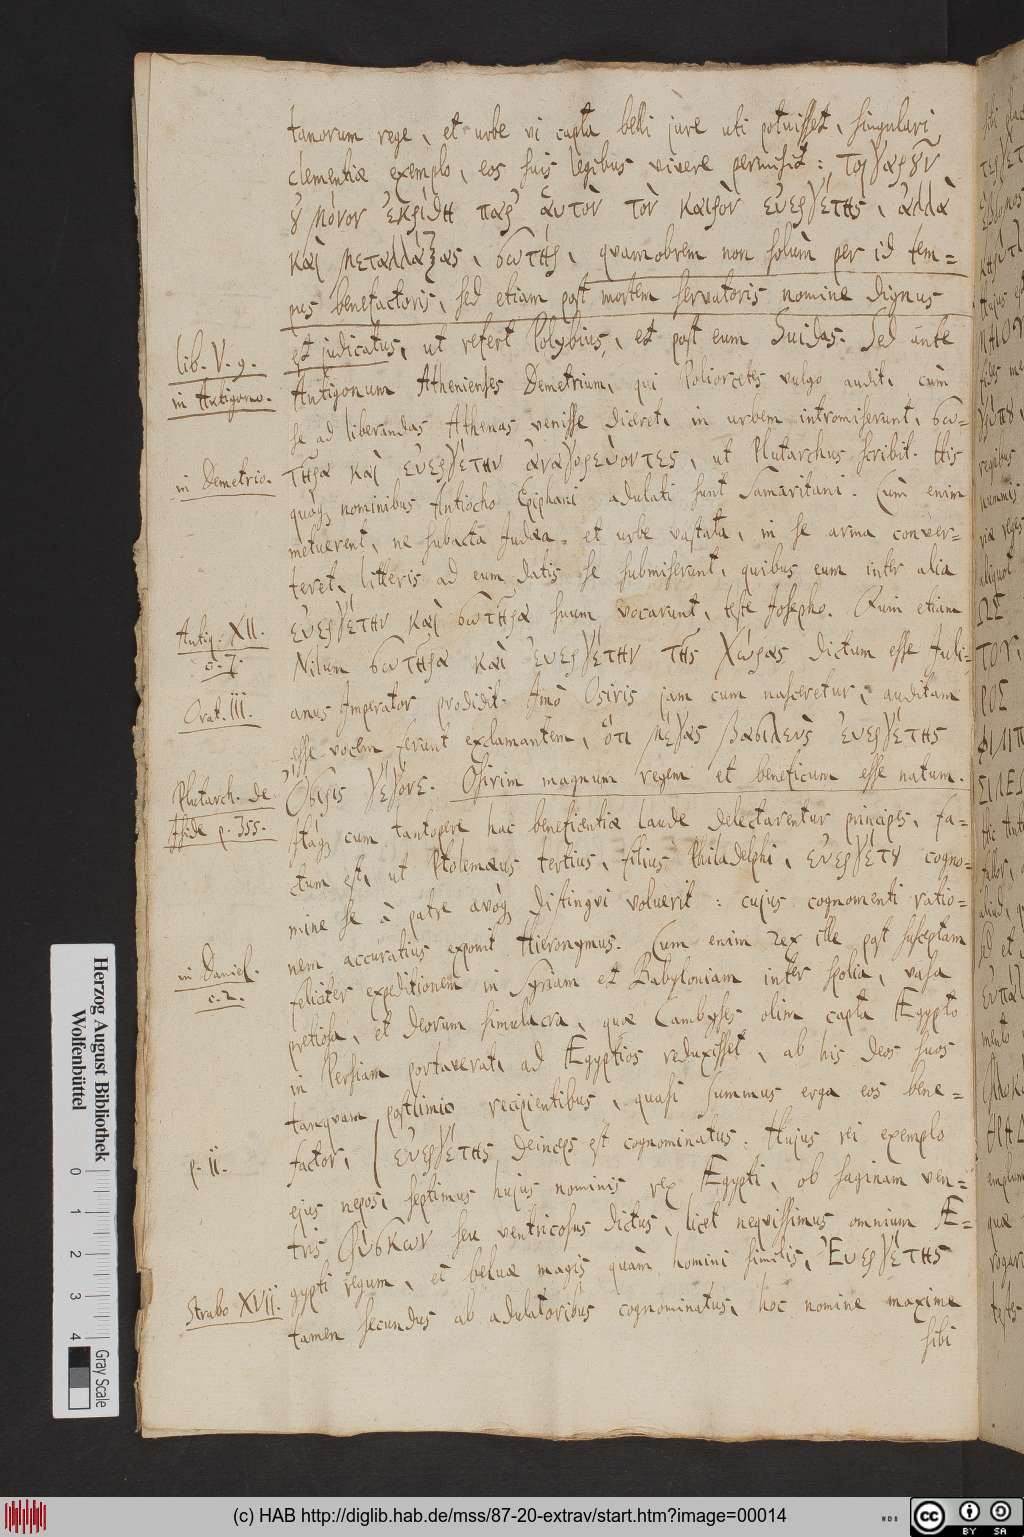 tanorum rege, et urbe vi capta belli jure uti potuisset, singulari
clementiæ exemplo, eos suis legibus vivere permisit: τοιγαρȣ̃ν
ȣ̓ μόνον ἐκρίθη παρ' ἀυτὸν τὸν καιρὸν ἐυεργέτης, ἀλλὰ
καὶ μεταλλάξας, σωτήρ, quamobrem non solùm per id tem=
pus benefactoris, sed etiam post mortem servatoris nomine dignus
est judicatus, ut refert Polybius, et post eum Suidas. Sed ante
lib. V. 9.
Antigonum Athenienses Demetrium, qui Poliorcetes vulgo audit, cùm
in Antigono.
se ad liberandas Athenas venisse diceret, in urbem intromiserunt, σω=
τῆρα καὶ ἐυεργέτην ἀναγορέυοντες, ut Plutarchus scribit. His
in Demetrio.
quoqꝫ nominibus Antiocho Epiphani adulati sunt Samaritani. Cùm enim
metuerent, ne subacta Judæa, et urbe vastata, in se arma conver=
teret, litteris ad eum datis se submiserunt, quibus eum inter alia
ἐυεργέτην καὶ σωτῆρα suum vocarunt, teste Josepho. Quin etiam
Antiq. XII.
c. 7.
Nilum σωτῆρα καὶ ἐυεργέτην τῆς χώρας dictum esse Juli=
anus Imperator prodidit. Imò Osiris jam cum nasceretur, auditam
Orat. III.
esse vocem ferunt exclamantem, ὅτι μέγας βασιλεὺς ἐυεργέτης
Ὄσιρις γέγονε. Osirim magnum regem et beneficum esse natum.
Plutarch. de
Iside p. 355.
Itaqꝫ cum tantopere hac beneficentiæ laude delectarentur principes, fa=
ctum est, ut Ptolemæus tertius, filius Philadelphi, ἐυεργέτȣ cogno=
mine se à patre avoqꝫ distingvi voluerit: cujus cognomenti ratio=
nem accuratius exponit Hieronymus. Cum enim rex ille post susceptam
in Daniel.
c. 2.
feliciter expeditionem in Syriam et Babyloniam inter spolia, vasa
pretiosa, et deorum simulacra, quæ Cambyses olim capta Ægypto
in Persiam portaverat, ad Ægyptios reduxisset, ab his deos suos
tanquam postlimio recipientibus, quasi summus erga eos bene=
factor, ἐυεργέτης deinceps est cognominatus. Hujus rei exemplo
p. 11.
ejus nepos, septimus hujus nominis rex Ægypti, ob saginam ven=
tris Φύσκων seu ventricosus dictus, licet neqvissimus omnium Æ=
gypti regum, et beluæ magis quàm homini similis, Ἐυεργέτης
Strabo XVII.
tamen secundus ab adulatoribus cognominatus, hoc nomine maxime
sibi
Herzog August Bibliothek
Wolfenbüttel
0 1 2 3 4
Gray Scale
(c) HAB http://diglib.hab.de/mss/87-20-extrav/start.htm?image=00014
cc BY SA